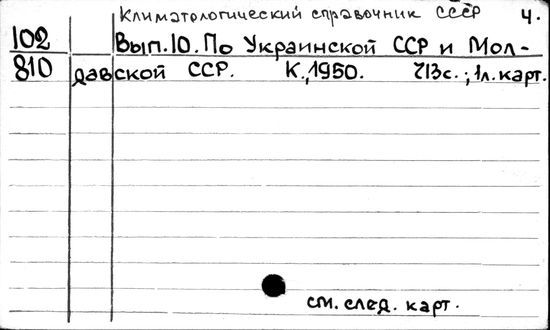 Климатологический справочник СССР 4.
102 Вып.10. По Украинской ССР и Мол-
810 давской ССР. К.,1950. 213с.; 1л.карт.
см. след. карт.